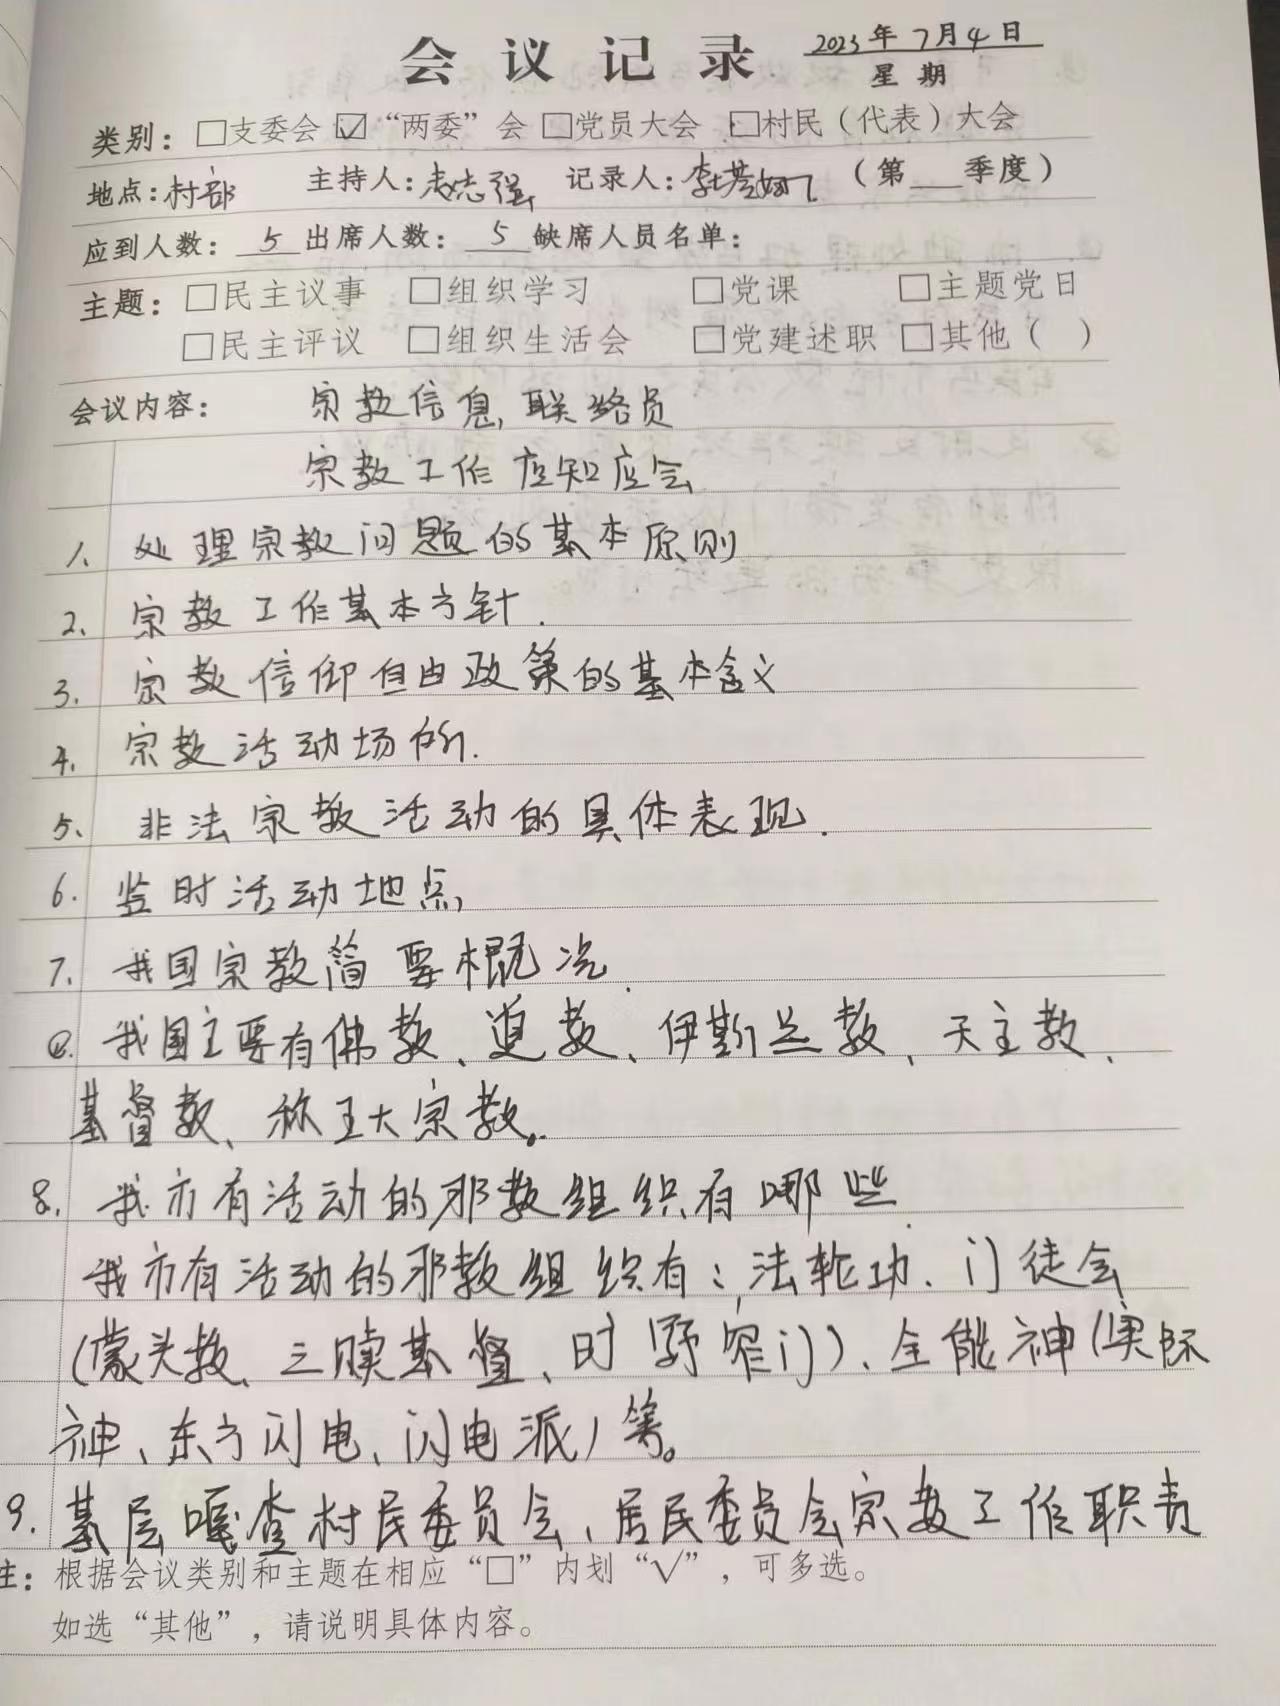 会议记录 2023年7月4日
星期
类别：□支委会 ☑“两委”会 □党员大会 □村民（代表）大会
地点：村部 主持人：志强 记录人：李 （第 季度）
应到人数：5 出席人数：5 缺席人员名单：
主题：□民主议事 □组织学习 □党课 □主题党日
□民主评议 □组织生活会 □党建述职 □其他（ ）
会议内容： 宗教信息联络员
宗教工作应知应会
1、处理宗教问题的基本原则
2、宗教工作基本方针.
3、宗教信仰自由政策的基本含义
4、宗教活动场所.
5、非法宗教活动的具体表现.
6. 时活动地点
7. 我国宗教简要概况.
我国主要有佛教、道教、伊斯兰教、天主教、
基督教、称五大宗教。
8. 我市有活动的邪教组织有哪些
我市有活动的邪教组织有：法轮功、门徒会
（蒙头教、三赎基督、旷野窄门）、全能神（实际
神、东方闪电、闪电派）等。
9. 基层嘎查村民委员会、居民委员会宗教工作职责
注：根据会议类别和主题在相应“□”内划“√”，可多选。
如选“其他”，请说明具体内容。